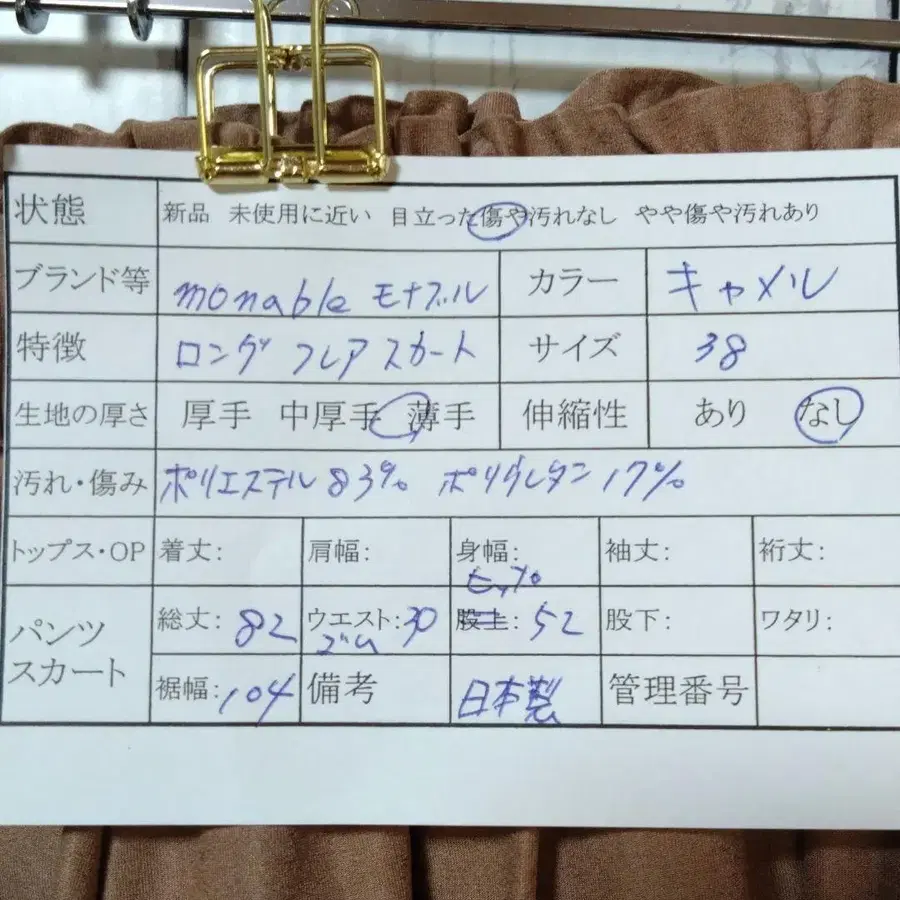 状態 新品 未使用に近い 目立った傷や汚れなし やや傷や汚れあり
ブランド等 monable モナブル カラー キャメル
特徴 ロング フレア スカート サイズ 38
生地の厚さ 厚手 中厚手 薄手 伸縮性 あり なし
汚れ・傷み ポリエステル 83% ポリウレタン 17%
トップス・OP 着丈: 肩幅: 身幅: 袖丈: 裄丈:
パンツ スカート 総丈: 82 ウエスト: 30 ゴム 股上: ヒップ 52 股下: ワタリ:
裾幅: 104 備考 日本製 管理番号